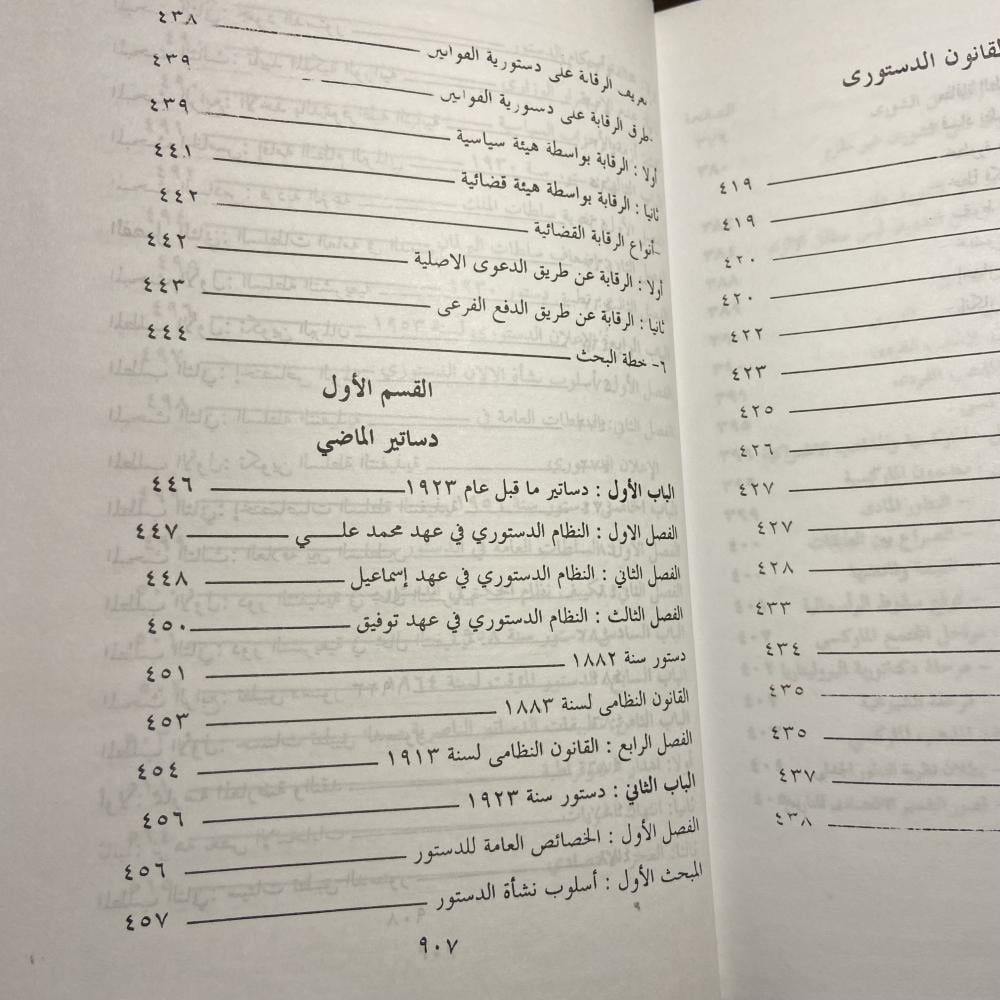 القانون الدستورى
٤١٩
٤١٩
٤٢٠
٤٢٠
٤٢٢
٤٢٣
٤٢٥
٤٢٦
٤٢٧
٤٢٧
٤٢٨
٤٣٣
٤٣٤
٤٣٥
٤٣٥
٤٣٧
٤٣٨
تعريف الرقابة على دستورية القوانين ٤٣٨
طرق الرقابة على دستورية القوانين ٤٣٩
أولا : الرقابة بواسطة هيئة سياسية ٤٣٩
ثانيا : الرقابة بواسطة هيئة قضائية ٤٤١
-أنواع الرقابة القضائية ٤٤٢
أولا : الرقابة عن طريق الدعوى الاصلية ٤٤٢
ثانيا : الرقابة عن طريق الدفع الفرعى ٤٤٣
٦- خطة البحث ٤٤٤
القسم الأول
دساتير الماضي
الباب الأول : دساتير ما قبل عام ١٩٢٣ ٤٤٦
الفصل الاول : النظام الدستوري في عهد محمد علي ٤٤٧
الفصل الثاني : النظام الدستوري في عهد إسماعيل ٤٤٨
الفصل الثالث : النظام الدستوري في عهد توفيق ٤٥٠
دستور سنة ١٨٨٢ ٤٥١
القانون النظامى لسنة ١٨٨٣ ٤٥٣
الفصل الرابع : القانون النظامى لسنة ١٩١٣ ٤٥٤
الباب الثاني : دستور سنة ١٩٢٣ ٤٥٦
الفصل الأول : الخصائص العامة للدستور ٤٥٦
المبحث الأول : أسلوب نشأة الدستور ٤٥٧
٩٠٧